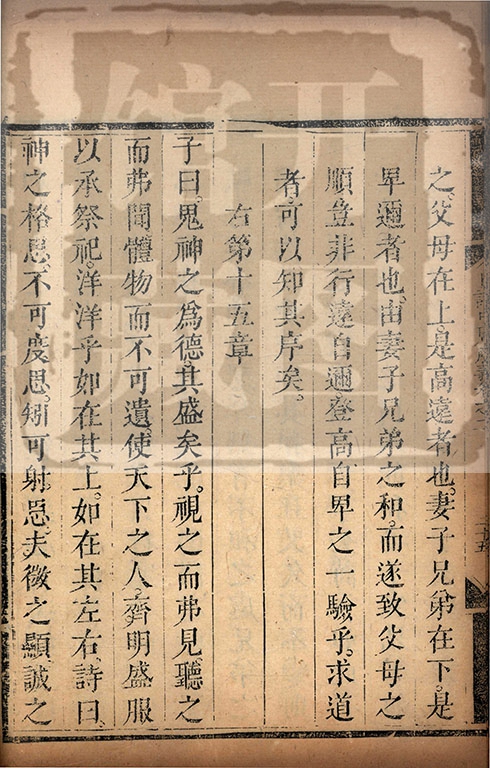 之。父母在上。是高遠者也。妻子兄弟在下。是
卑邇者也。由妻子兄弟之和。而遂致父母之
順。豈非行遠自邇。登高自卑之一驗乎。求道
者可以知其序矣。
右第十五章
子曰。鬼神之爲德。其盛矣乎。視之而弗見。聽之
而弗聞。體物而不可遺。使天下之人。齊明盛服
以承祭祀。洋洋乎如在其上。如在其左右。詩曰。
神之格思。不可度思。矧可射思。夫微之顯。誠之